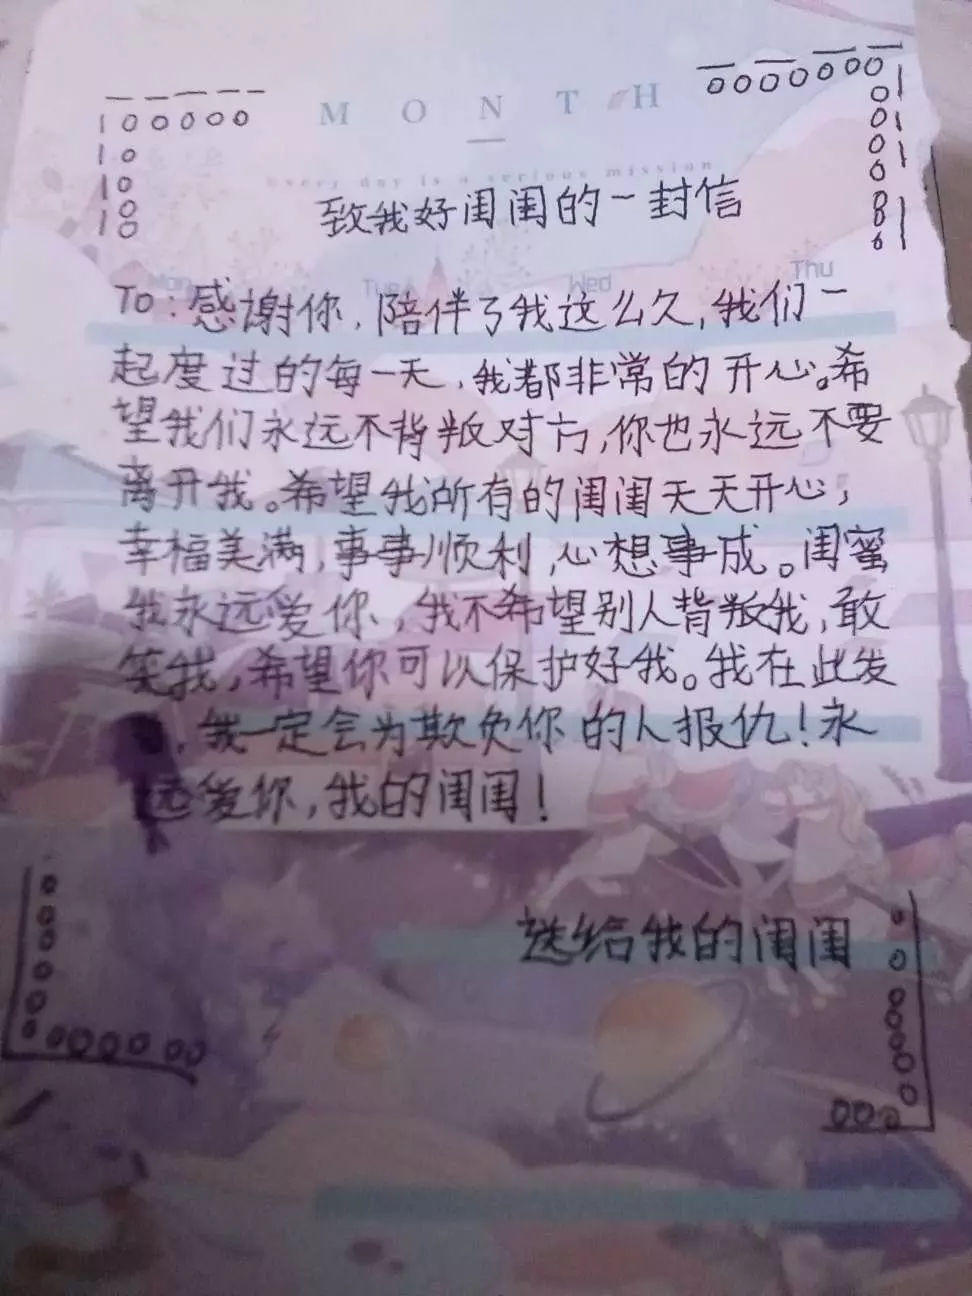 MONTH
every day is a serious mission
致我好闺闺的一封信
Mon Tue Wed Thu
To:感谢你,陪伴了我这么久,我们一
起度过的每一天,我都非常的开心。希
望我们永远不背叛对方,你也永远不要
离开我。希望我所有的闺闺天天开心,
幸福美满,事事顺利,心想事成。闺蜜
我永远爱你,我不希望别人背叛我,敢
笑我,希望你可以保护好我。我在此发
,我一定会为欺负你的人报仇!永
远爱你,我的闺闺!
送给我的闺闺